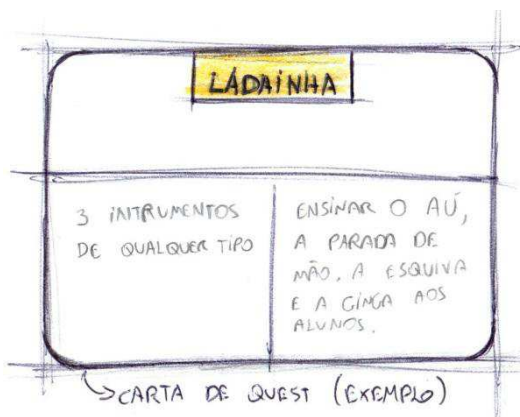 LADAINHA
3 INTRUMENTOS
DE QUALQUER TIPO
ENSINAR O AÚ,
A PARADA DE
MÃO, A ESQUIVA
E A GINGA AOS
ALUNOS.
CARTA DE QUEST (EXEMPLO)